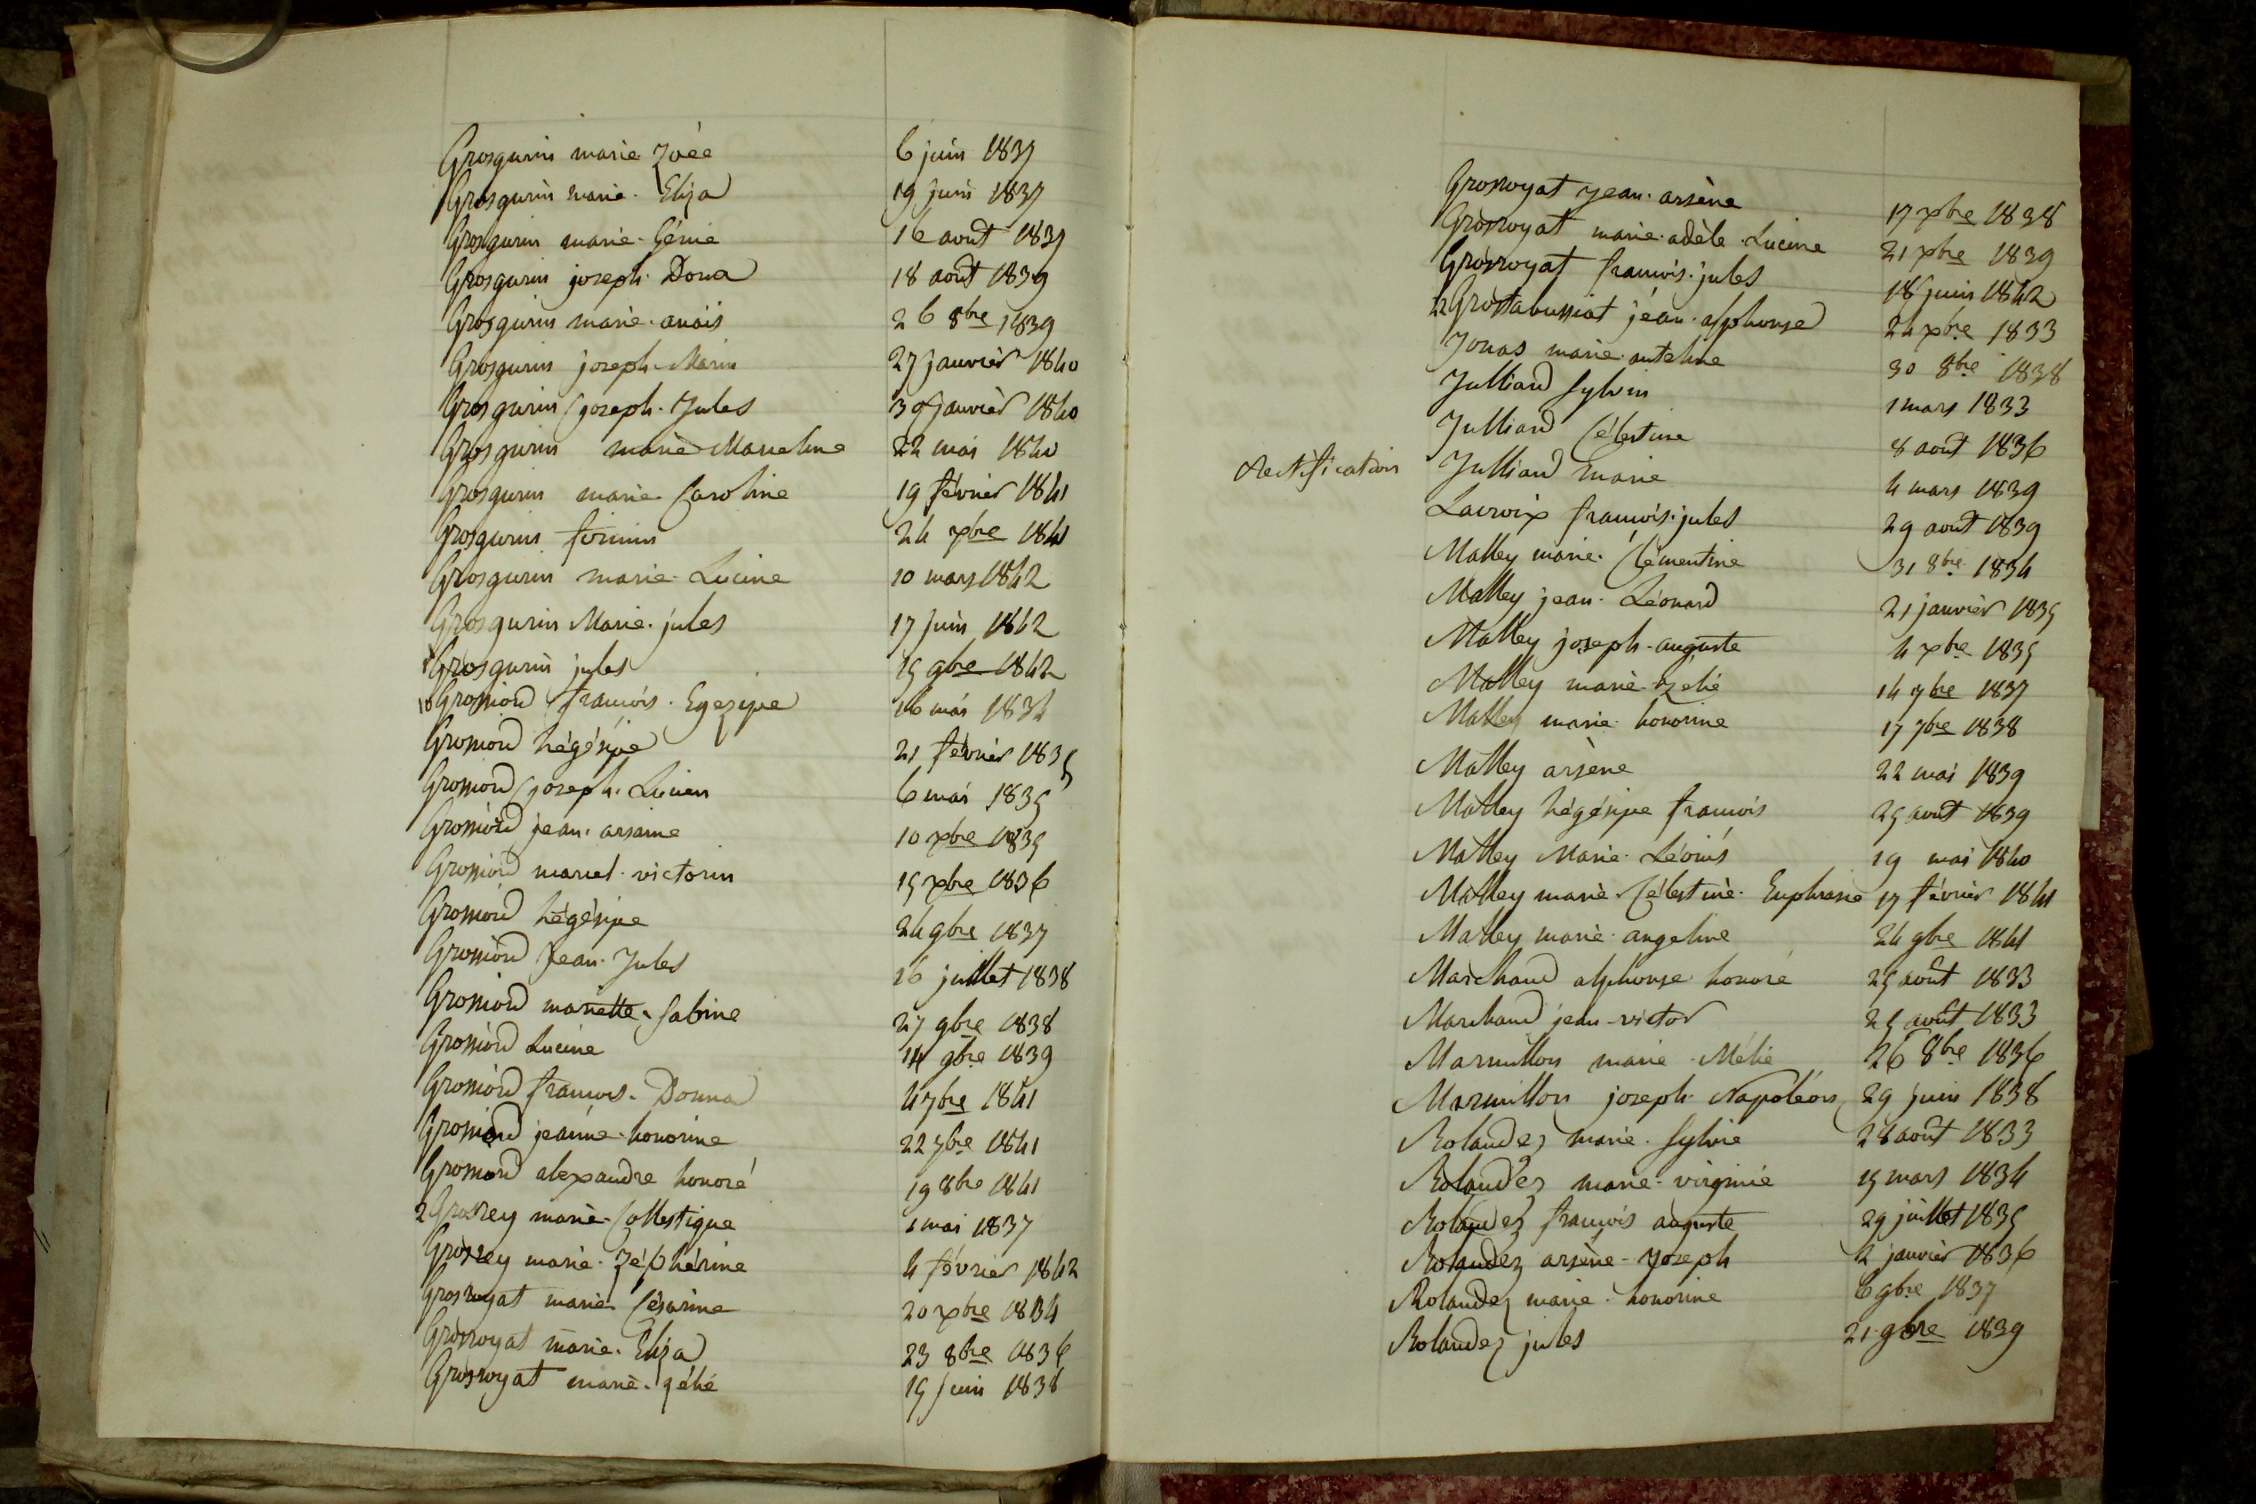 Grosgurin marie Zoée 6 juin 1837
Grosgurin marie. Eliza 19 juin 1837
Grosgurin marie. Génie 16 août 1837
Grosgurin joseph. Dona 18 août 1839
Grosgurin marie. anaïs 26 8bre 1839
Grosgurin joseph Marin 27 janvier 1840
Grosgurin joseph. Jules 30 janvier 1840
Grosgurin marie Marceline 22 mai 1840
Grosgurin marie Caroline 19 février 1841
Grosgurin firmin 24 xbre 1841
Grosgurin marie. Lucine 10 mars 1842
Grosgurin Marie. jules 17 juin 1842
Grosgurin jules 15 9bre 1842
Grosfiord françois. Egezipe 16 mai 1834
Grosfiord hégésipe 21 février 1835
Grosfiord joseph. Lucien 6 mai 1835
Grosfiord jean. arsaine 10 xbre 1835
Grosfiord marcel. victorin 15 xbre 1836
Grosfiord hégésipe 24 9bre 1837
Grosfiord Jean. Jules 16 juillet 1838
Grosfiord mariette. Sabine 27 9bre 1838
Grosfiord Lucine 14 9bre 1839
Grosfiord françois. Donna 4 7bre 1841
Grosfiord jeanne. honorine 22 7bre 1841
Grosfiord alexandre honoré 19 8bre 1841
2 Grosrey marie. Collestique 1 mai 1837
Grosrey marie. Zéphérine 4 février 1842
Grosroyat marie Césarine 20 xbre 1834
Grosroyat marie. Eliza 23 8bre 1836
Grosroyat marie. zélié 15 juin 1838
Grosroyat Jean. arsène 17 xbre 1838
Grosroyat marie. adèle. Lucine 21 xbre 1839
Grosroyat françois. jules 18 juin 1842
Grostabussiat jean. alphonse 24 xbre 1833
Jonas marie anteline 30 8bre 1838
Julliard Sylvin 1 mars 1833
Julliard Célestine 8 août 1836
Rectification Julliard marie 4 mars 1839
Lacroix françois. jules 29 août 1839
Matley marie. Clémentine 31 8bre 1834
Matley jean. Léonard 21 janvier 1835
Matley joseph. auguste 4 xbre 1835
Matley marie. zelié 14 7bre 1837
Matley marie. honorine 17 7bre 1838
Matley arsène 22 mai 1839
Matley hégésipe françois 25 août 1839
Matley Marie. Léonis 19 mai 1840
Matley marie. Célestine. Euphrasie 17 février 1841
Matley marie. angeline 24 9bre 1841
Marchand alphonse honoré 25 août 1833
Marchand jean-victor 25 août 1833
Marmillon marie. Mélie 26 8bre 1836
Marmillon joseph. Napoléon 29 juin 1838
Rolandez marie. Sylvie 28 août 1833
Rolandez marie. virginie 15 mars 1834
Rolandez françois auguste 29 juillet 1835
Rolandez arsène-Joseph 2 janvier 1836
Rolandez marie. honorine 6 9bre 1837
Rolandez jules 21 9bre 1839